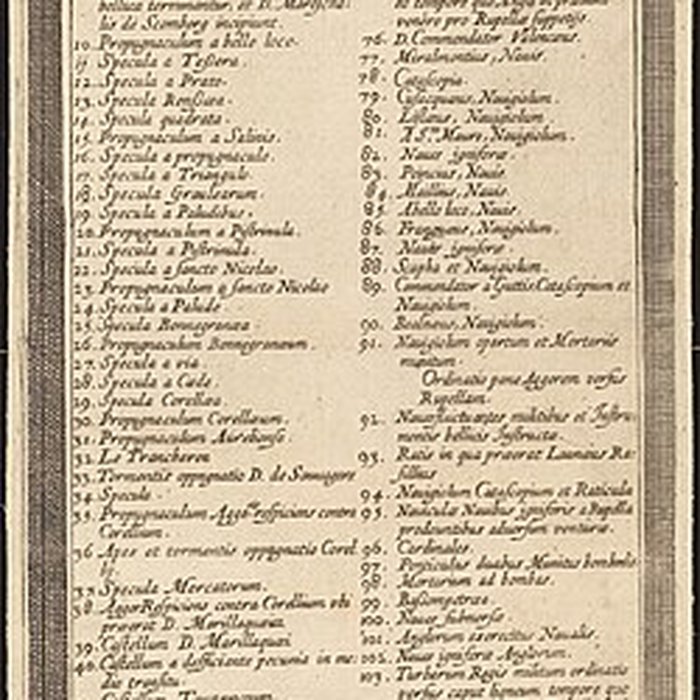 bellica terminantur, et D. Maresca-
lis de Scomberg incipiunt.
10. Propugnaculum a belle loco.
11. Specula a Tessera.
12. Specula a Prato.
13. Specula
14. Specula quadrata.
15. Propugnaculum a Salinis.
16. Specula a propugnaculo.
17. Specula a Triangulo.
18. Specula
19. Specula a Paludibus.
20. Propugnaculum a Pistrinula.
21. Specula a Pistrinula.
22. Specula a sancto Nicolao.
23. Propugnaculum a sancto Nicolao
24. Specula a Palude.
25. Specula Bonnegranea.
26. Propugnaculum Bonnegraneum.
27. Specula a via.
28. Specula a Cado.
29. Specula Corellaea.
30. Propugnaculum Corellaeum.
31. Propugnaculum
32. Le Trancheron
33. Tormentis oppugnatio D. de
34. Specula.
35. Propugnaculum respiciens contra
Corellium.
36 et tormentis oppugnatio Corel
lij
37. Specula Mercatorum.
38. Agger Respiciens contra Corellium ubi
praeerat D. Marillaqueus
39. Castellum D. Marillaquei
40. Castellum a defficiente pecunia in me:
dio transitu.
Castellum
et tempore quo
venere pro Rupellae suppetijs.
76. D. Commendator Valencaeus.
77. Miralmontius, Nauis.
78. Catascopia.
79. Nauigiolum.
80. Nauigiolum
81. A S.to Mauro, Nauigiolum.
82. Naues igniferae.
83. Poincius, Nauis
84. Maillius, Nauis.
85. Abelle loco, Nauis.
86. Nauigiolum.
87. Naues igniferae.
88. Scapha et Nauigiolum.
89. Commendator a Guttis Catascopium et
Nauigiolum.
90. Nauigiolum.
91. Nauigiolum opertum et Mortariis
munitum.
Ordinatio pone Aggerem versus
Rupellam.
92. Naues fluctuantes militibus et Instru-
mentis bellicis Instructae.
93. Ratis in qua praeerat Launaius Ra-
sillius
94. Nauigiolum Catascopium et Raticula
95. Nauiculae Nauibus igniferis a Rupella
prodeuntibus adversum venturae.
96. Cardinales.
97. Ponticulus duabus Munitus bombardis
98. Mortarium ad bombas.
99.
100. Naues submersae.
101. Anglorum exercitus Naualis.
102. Naues igniferae Anglorum.
103. Turberum Regis militum ordinatio
versus caput tempore quo